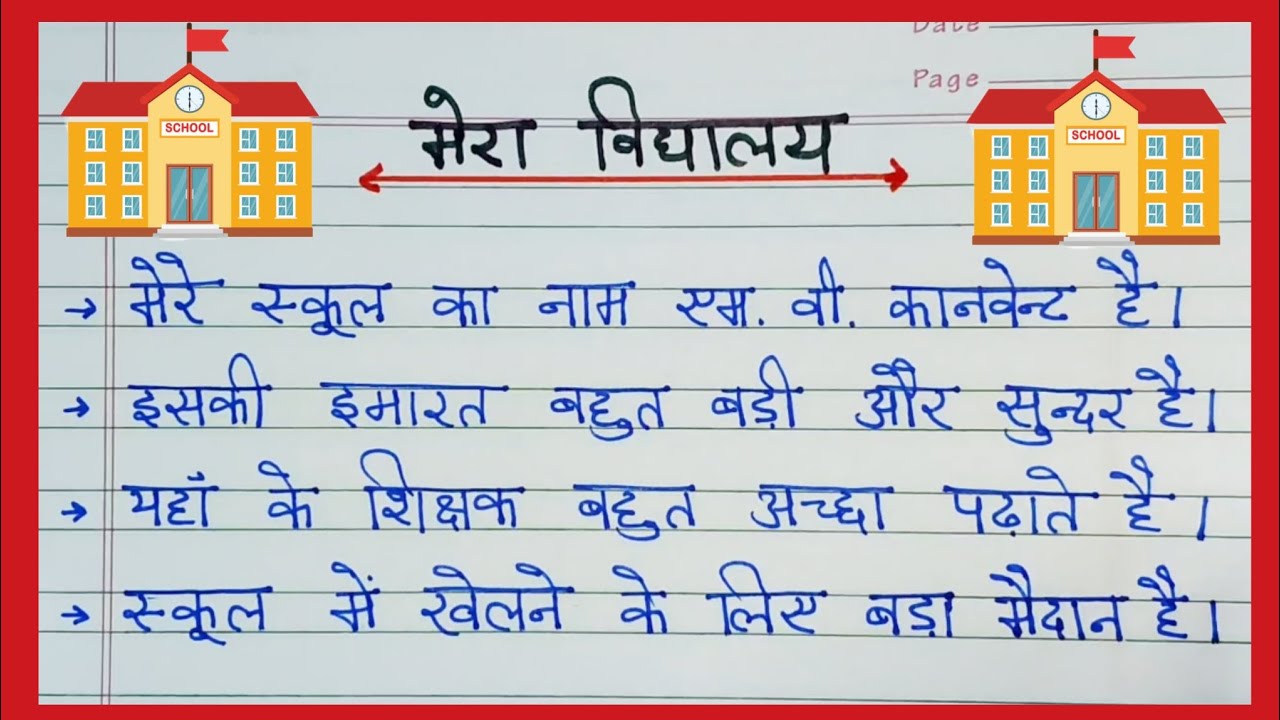 Date
Page
SCHOOL
SCHOOL
मेरा विद्यालय
→ मेरे स्कूल का नाम एम. वी. कानवेन्ट है।
→ इसकी इमारत बहुत बड़ी और सुन्दर है।
→ यहाँ के शिक्षक बहुत अच्छा पढ़ाते है।
→ स्कूल में खेलने के लिए बड़ा मैदान है।